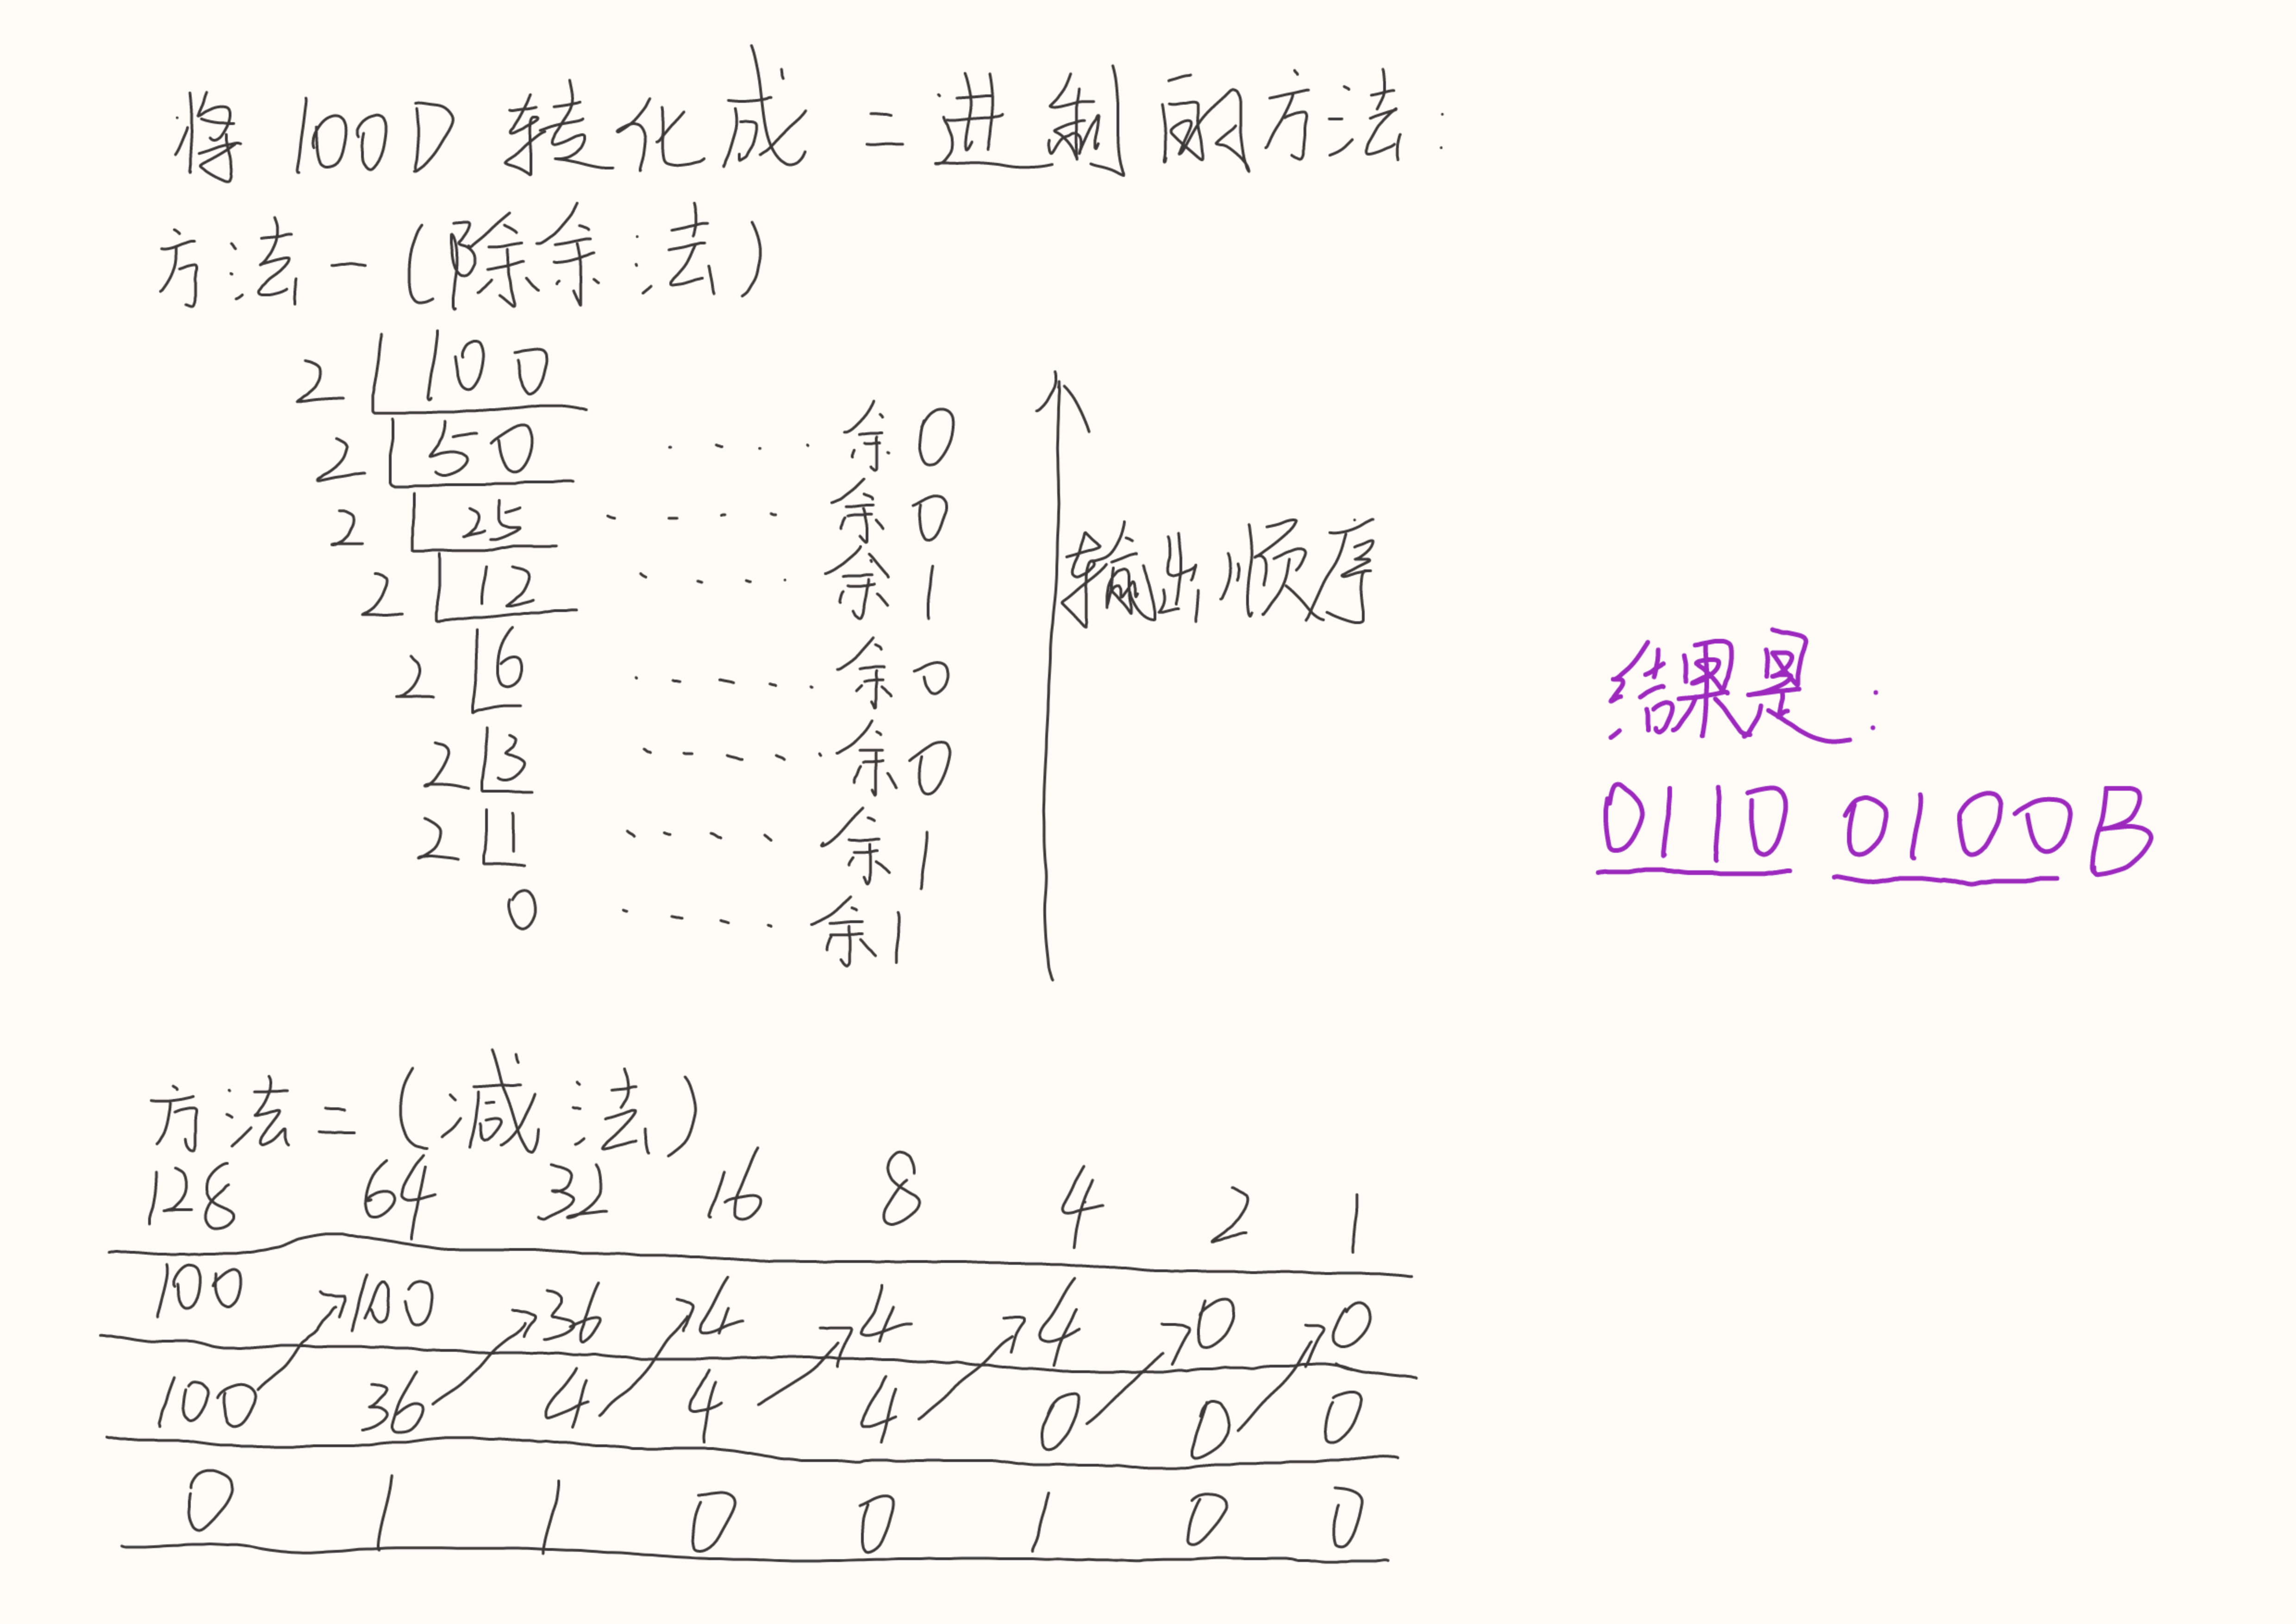 将100D转化成二进制的方法:
方法一(除余法)
2 100
2 50 ····余0
2 25 ····余0
2 12 ····余1
2 6 ·····余0
2 3 ·····余0
2 1 ····余1
0 ····余1
输出顺序
结果是:
0110 0100B
方法二(减法)
128 64 32 16 8 4 2 1
100 100 36 4 4 4 0 0
100 36 4 4 4 0 0 0
0 1 1 0 0 1 0 0